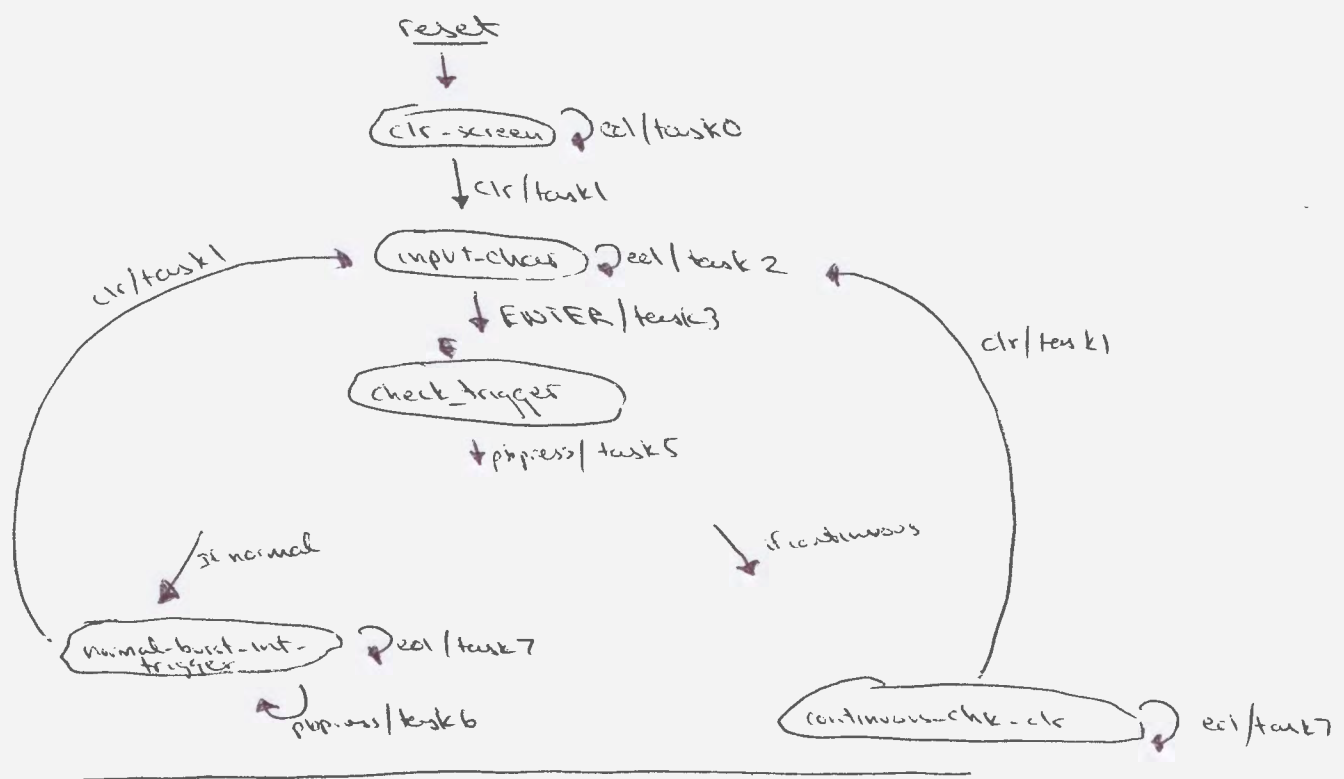 reset
clr-screen
eol/task0
clr/task1
clr/task1
input-char
eol/task 2
ENTER/task3
clr/task1
check_trigger
pbpress/task5
If normal
if continuous
normal-burst-int-
trigger
eol/task7
pbpress/task6
continuous-chk-clr
eol/task7